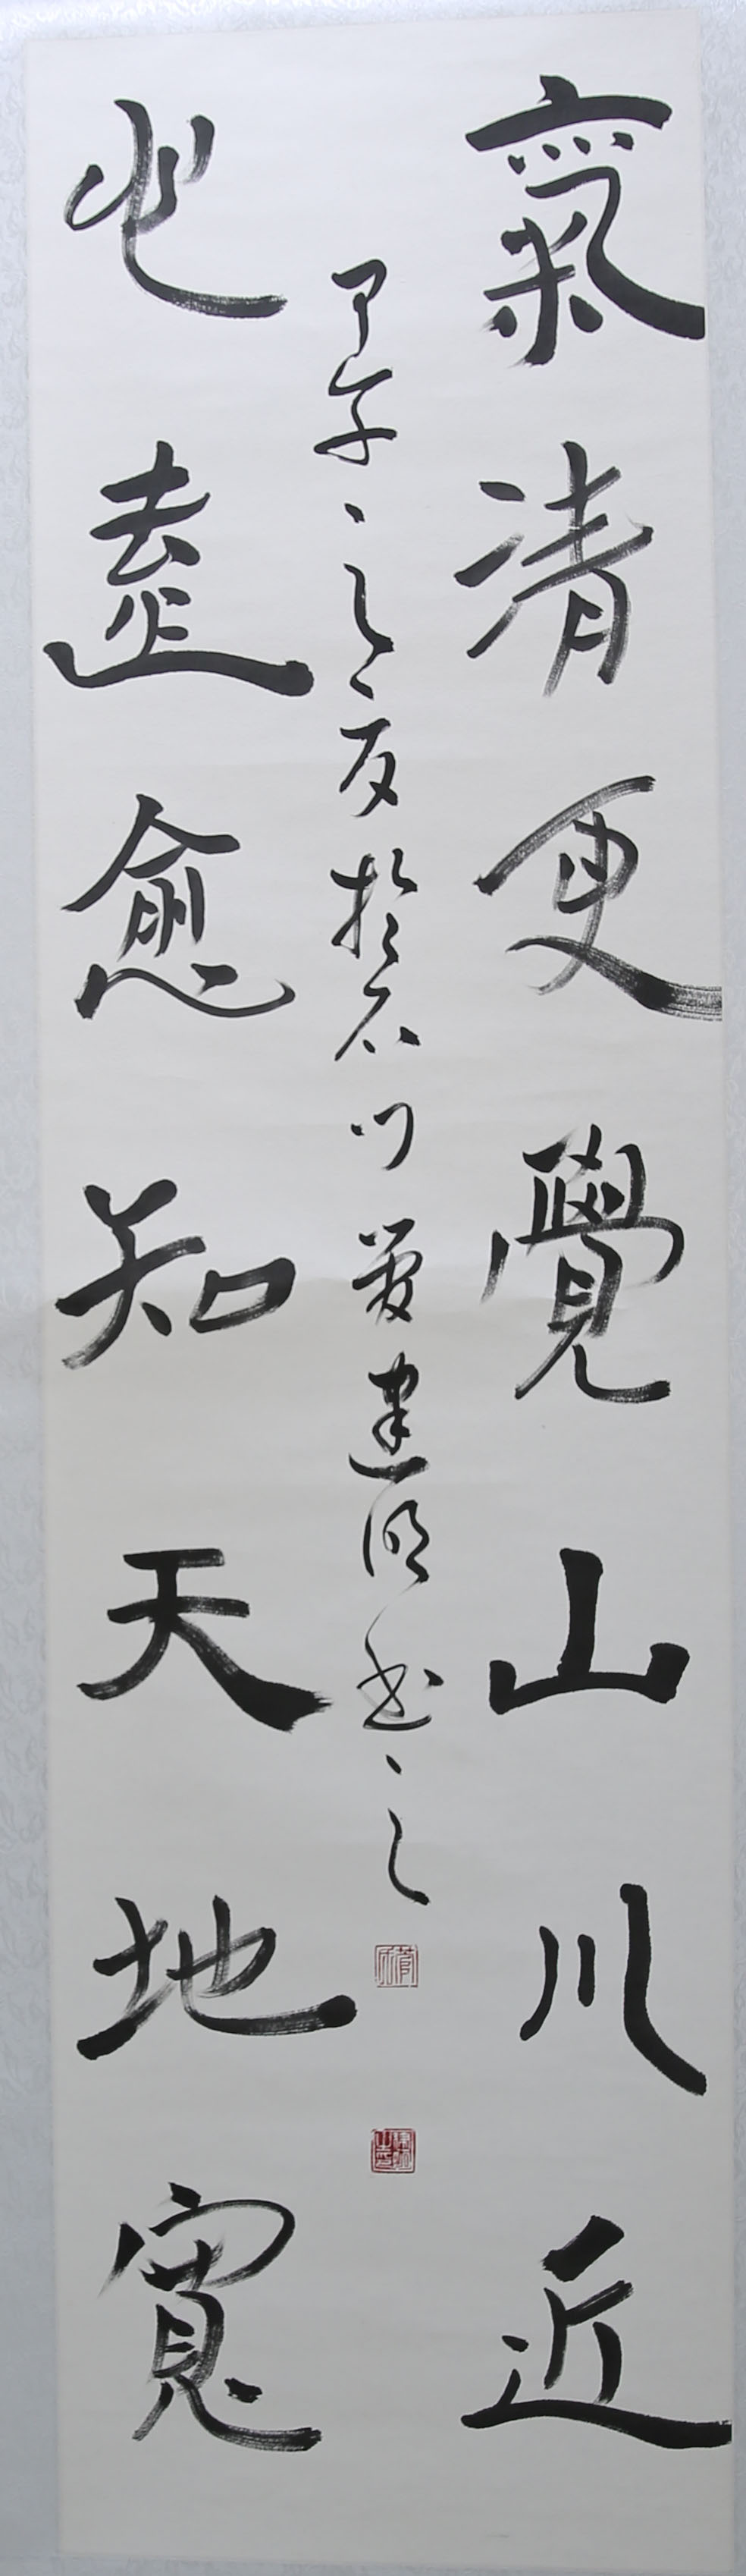 氣清更覺山川近
心遠愈知天地寬
甲午之夏於石門 建明書之